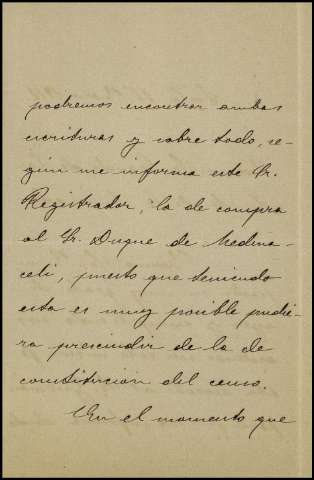 podremos encontrar ambas
escrituras y sobre todo, se-
gún me informa este Sr.
Registrador, la de compra
al Sr. Duque de Medina-
celi, puesto que teniendo
esta es muy posible pudie-
ra prescindir de la de
constitución del censo.
En el momento que